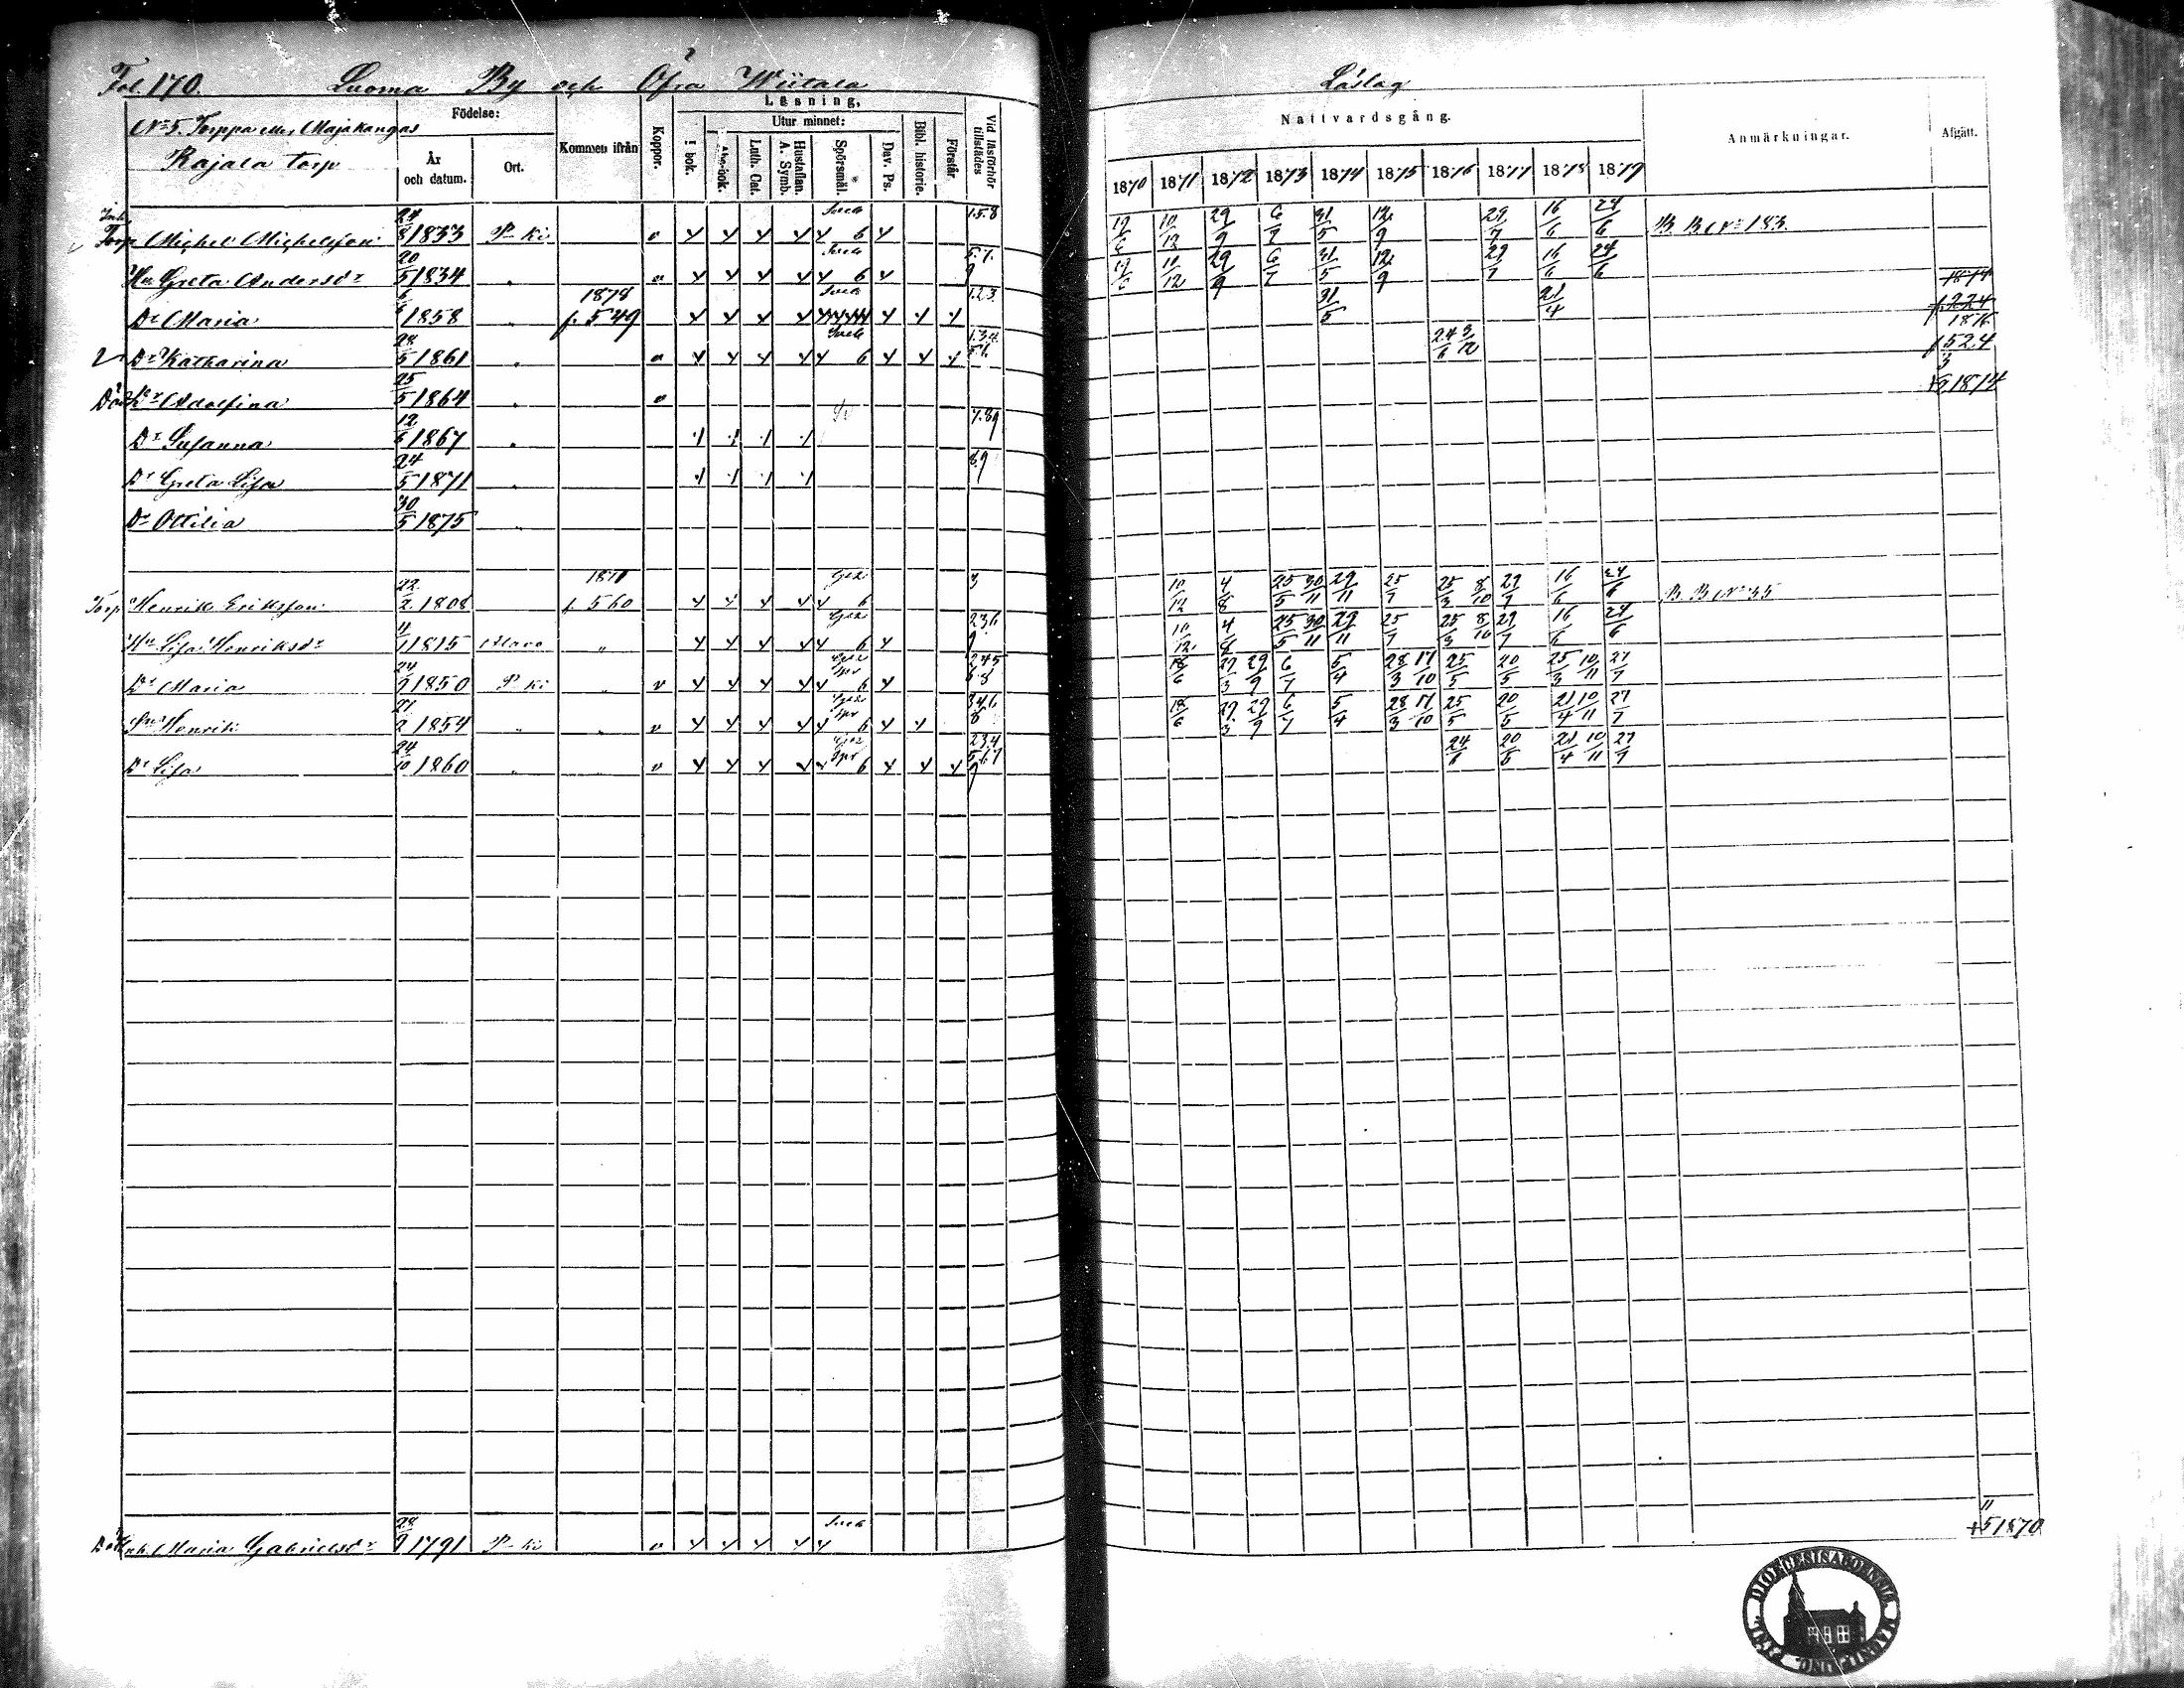 Fol. 170. Luoma By och Öfra Wiitala Läslag
No 5. Torppa eller Majakangas
Rajala torp
Födelse:
År och datum.
Ort.
Kommen ifrån
Koppor.
Läsning,
Utur minnet:
I bok.
Abc-bok.
Luth. Cat.
Hustaflan. A. Symb.
Spörsmål.
Dav. Ps.
Bibl. historie.
Förstår.
Vid läsförhör tillstädes
Nattvardsgång.
1870 1871 1872 1873 1874 1875 1876 1877 1878 1879
Anmärkningar.
Afgått.
Torp Michel Michelsson 24/8 1833 P ki v 6 1.5.8 10/12 29/9 6/7 31/5 12/9 29/7 16/6 24/6 B. B. No 183
Hu Greta Andersdr 20/5 1834 " v 6 5.7.9 10/12 29/9 6/7 31/5 12/9 29/7 16/6 24/6
Dr Maria 6/6 1858 " 1878 f. 549 1.2.3 31/5 21/4 1874 f. 224
Dr Katharina 28/5 1861 " v 6 24/6 3/12 1876 f 524
Död Dr Adolfina 25/5 1864 " v † 3/5 1874
Dr Susanna 12/6 1867 " 7.8.9
Dr Greta Lisa 24/5 1871 " 8.9
Dr Ottilia 30/5 1875 "
Torp Henrik Eriksson 22/2 1808 1871 f. 560 6 3 10/12 4/8 25/5 30/11 29/11 25/7 25/3 8/10 29/7 16/6 24/6 B. B. No 35
Hu Lisa Henriksdr 11/1 1815 Alavo " 6 2.3.6 9 10/12 4/8 25/5 30/11 29/11 25/7 25/3 8/10 29/7 16/6 24/6
Dr Maria 24/9 1850 P ki " v 6 2.4.5 6.8 18/6 29/3 29/9 6/7 5/4 28/3 17/10 25/5 20/5 25/3 10/11 27/7
Son Henrik 21/2 1854 " " v 6 3.4.6 8 18/6 29/3 29/9 6/7 5/4 28/3 17/10 25/5 20/5 21/4 10/11 27/7
Dr Lisa 24/10 1860 " " v 6 2.3.4 5.6.7 9 24/6 20/5 21/4 10/11 27/7
Död Enk. Maria Gabrielsdr 28/9 1791 P ki v † 11/5 1870